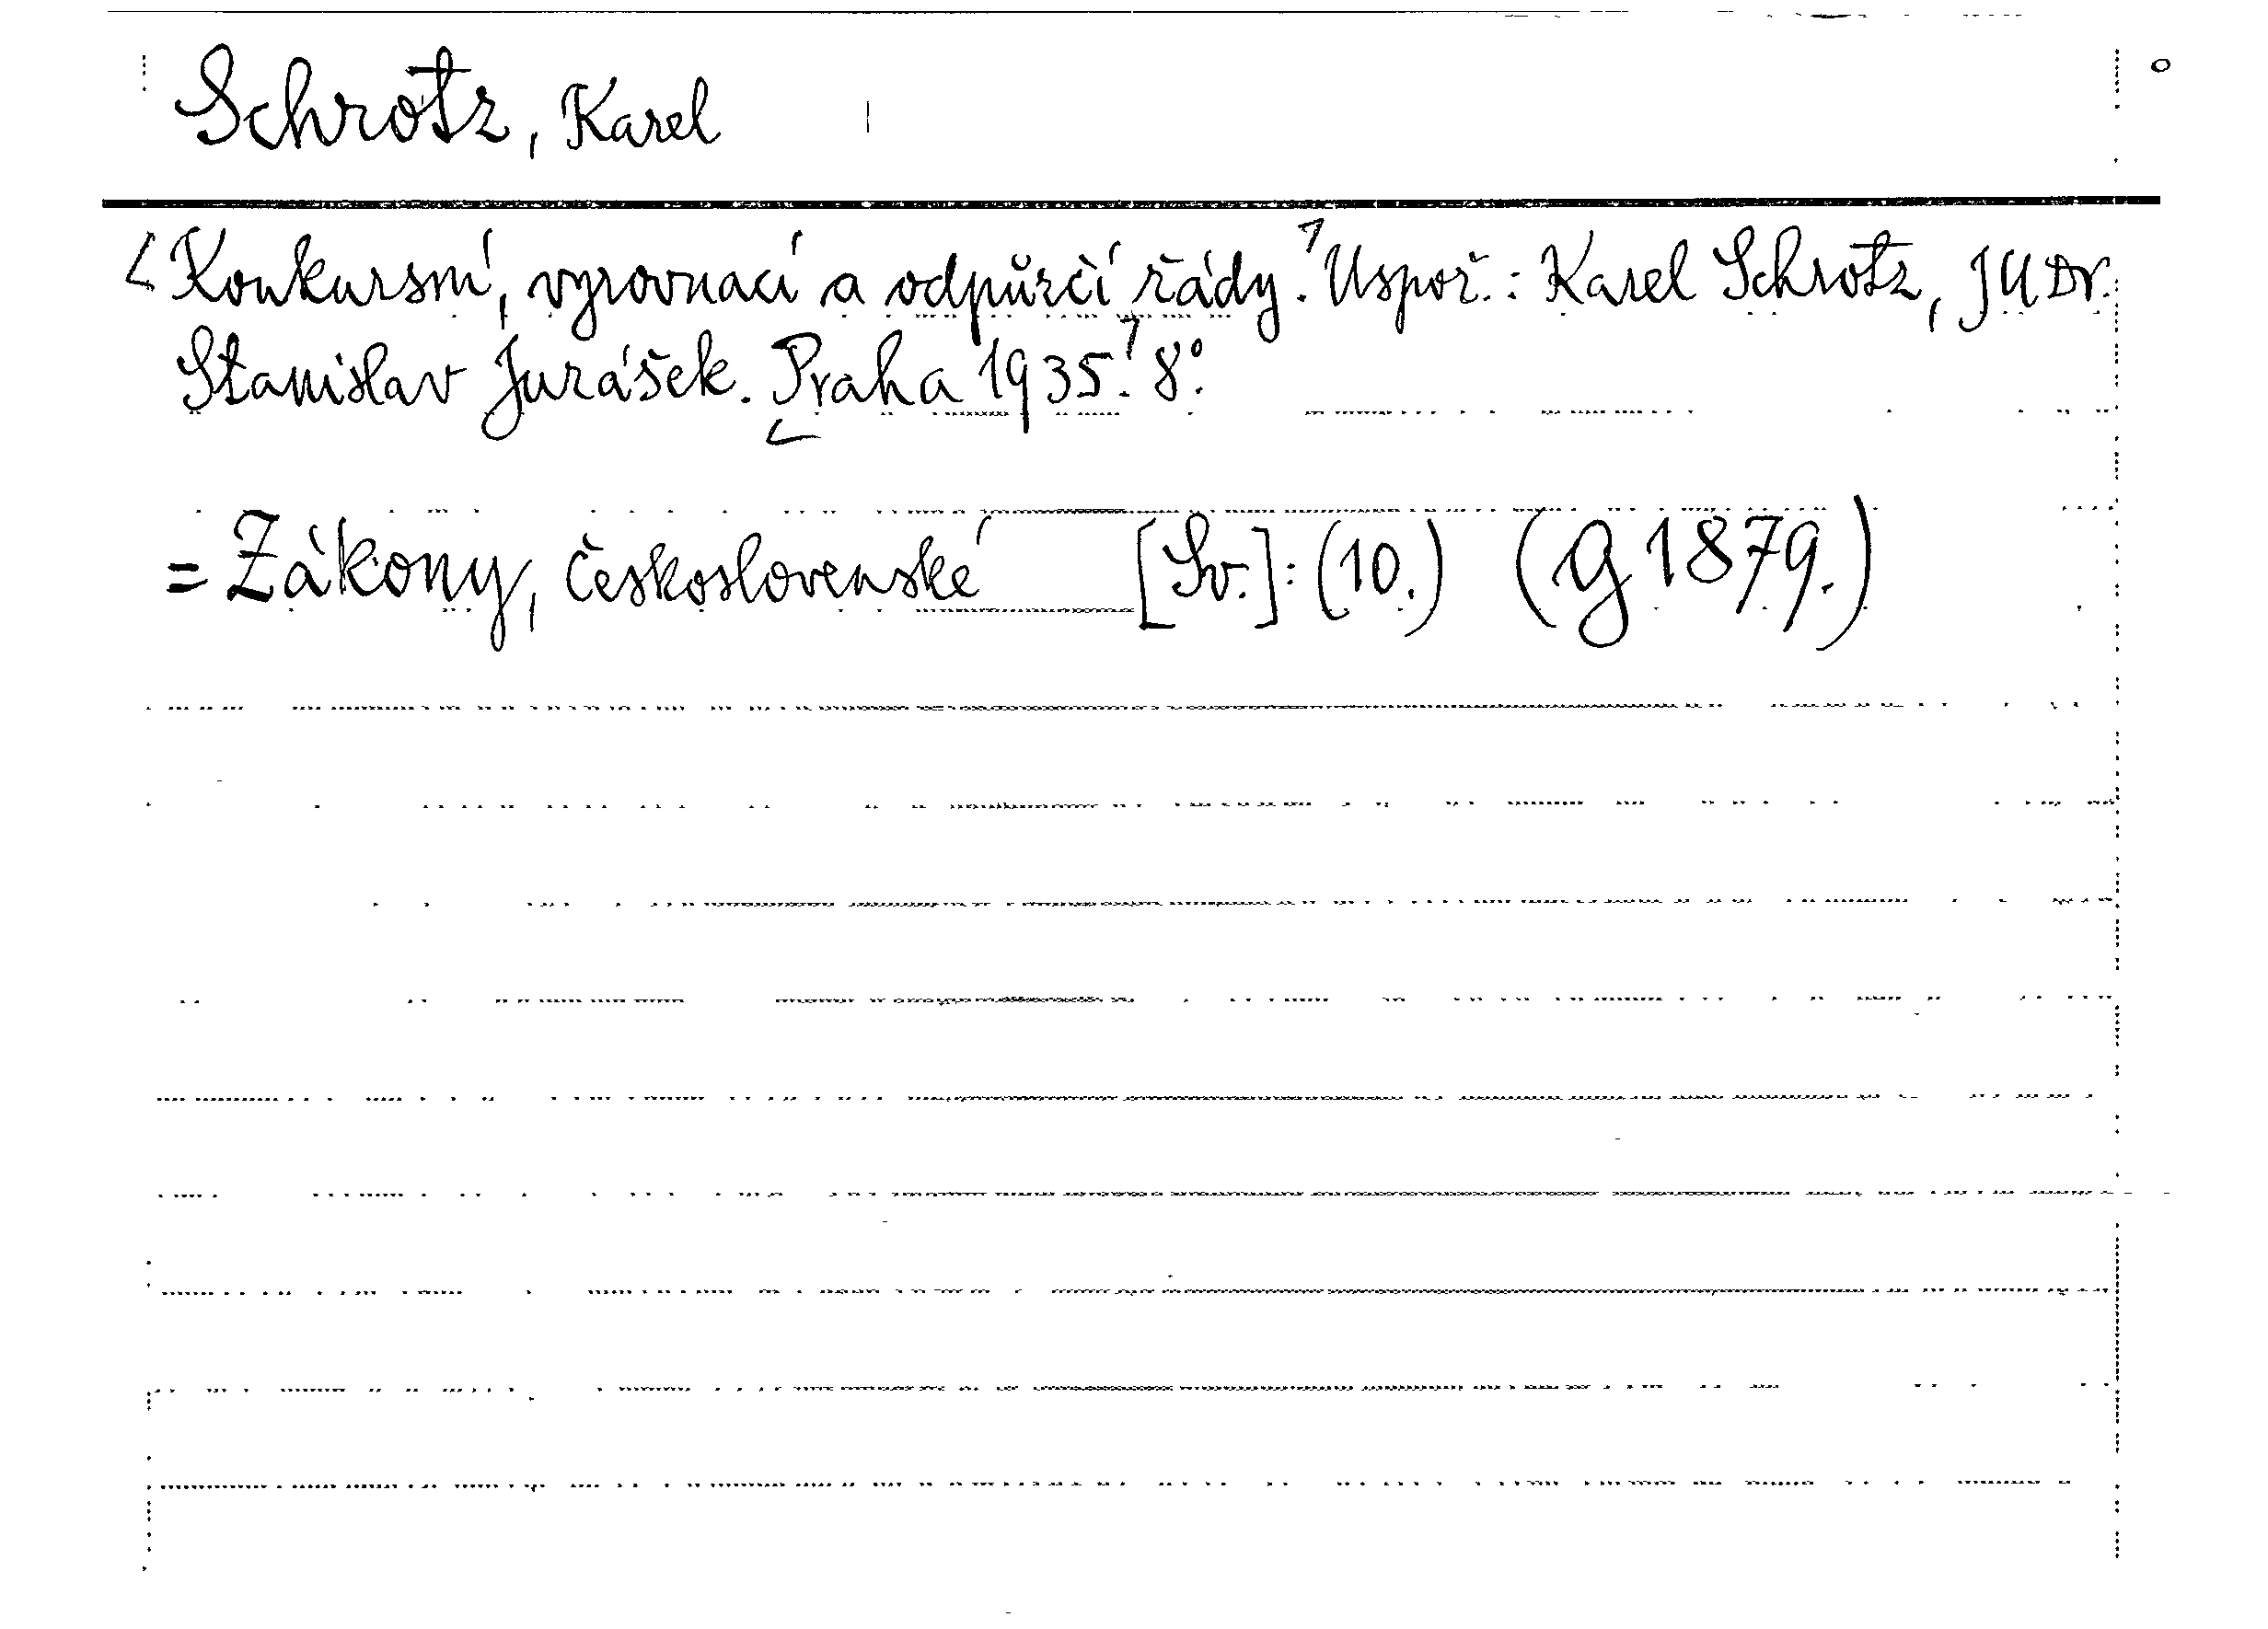 Schrotz, Karel
Konkursní, vyrovnací a odpůrčí řády. Uspoř.: Karel Schrotz, JUDr.
Stanislav Jurášek. Praha 1935. 8°.
= Zákony, československé [Sv.]: (10.) (G 1879.)